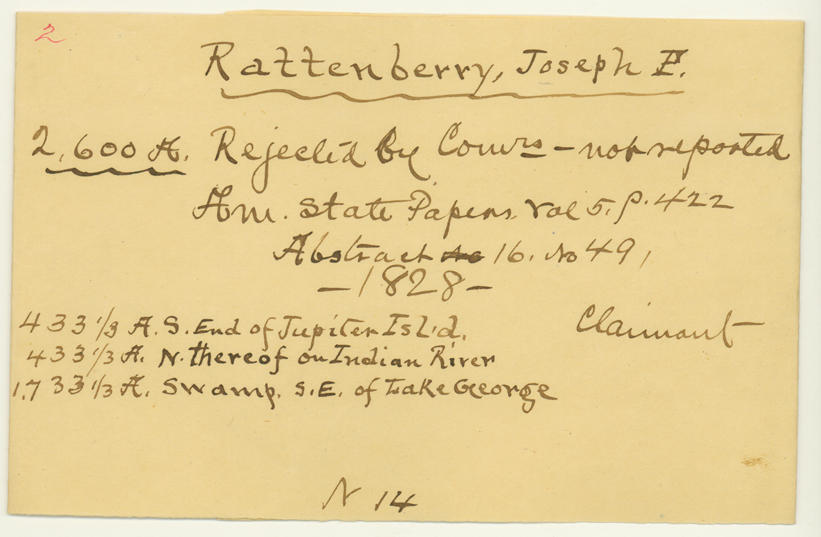 2
Rattenberry, Joseph E.
2,600 A. Rejected by Comrs - not reported
Am. State Papers. Vol 5. p. 422
Abstract 16. No 49,
- 1828 -
433 1/3 A. S. End of Jupiter Isl'd. Claimant
433 1/3 A. N. thereof on Indian River
1,733 1/3 A. Swamp. S.E. of Lake George
N 14